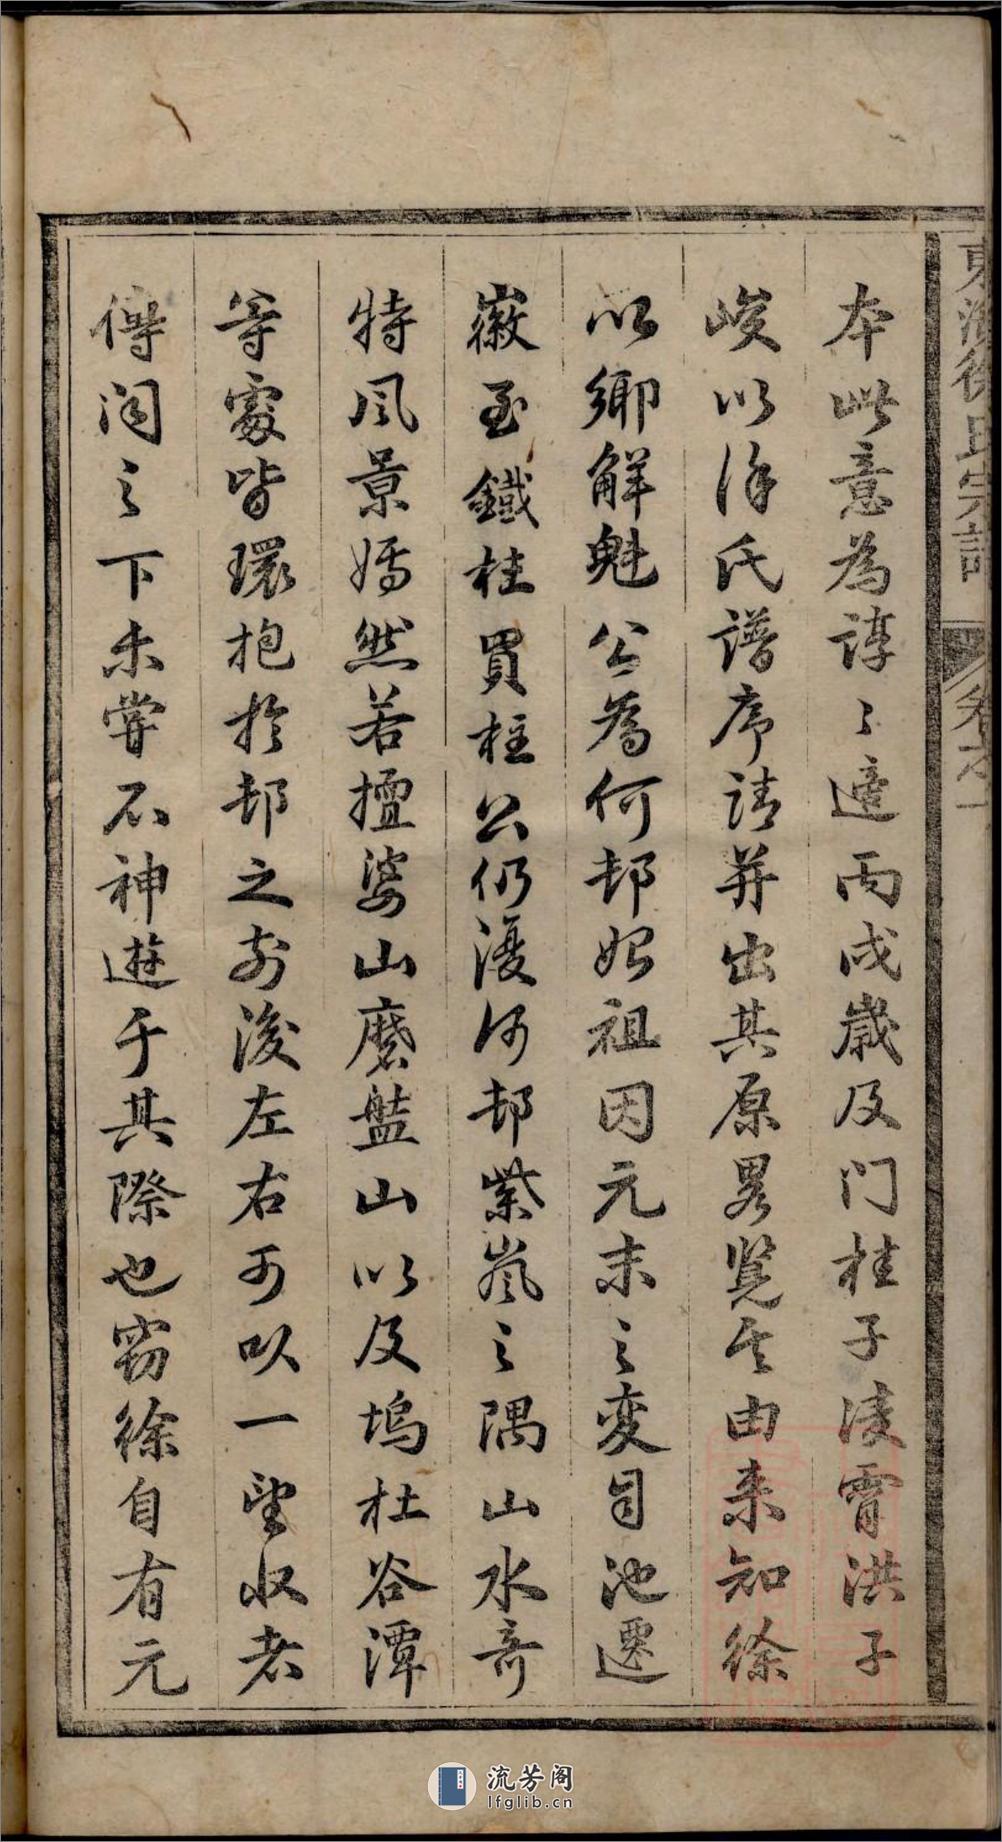 東海徐氏宗譜 卷之一
本此意為諄〻適丙戌歲及门桂子淩霄洪子
峻以徐氏譜序請并出其原畧覽其由来知徐
以鄉解魁公為何邨始祖因元末之变自池遷
徽至鐵柱買柱公仍復何邨紫嵐之隅山水奇
特风景嫣然若擅婆山磨盐山以及塢杜谷潭
等處皆環抱於邨之前後左右可以一望收者
傳闻之下未嘗不神遊于其際也窃徐自有元
流芳阁
lfglib.cn